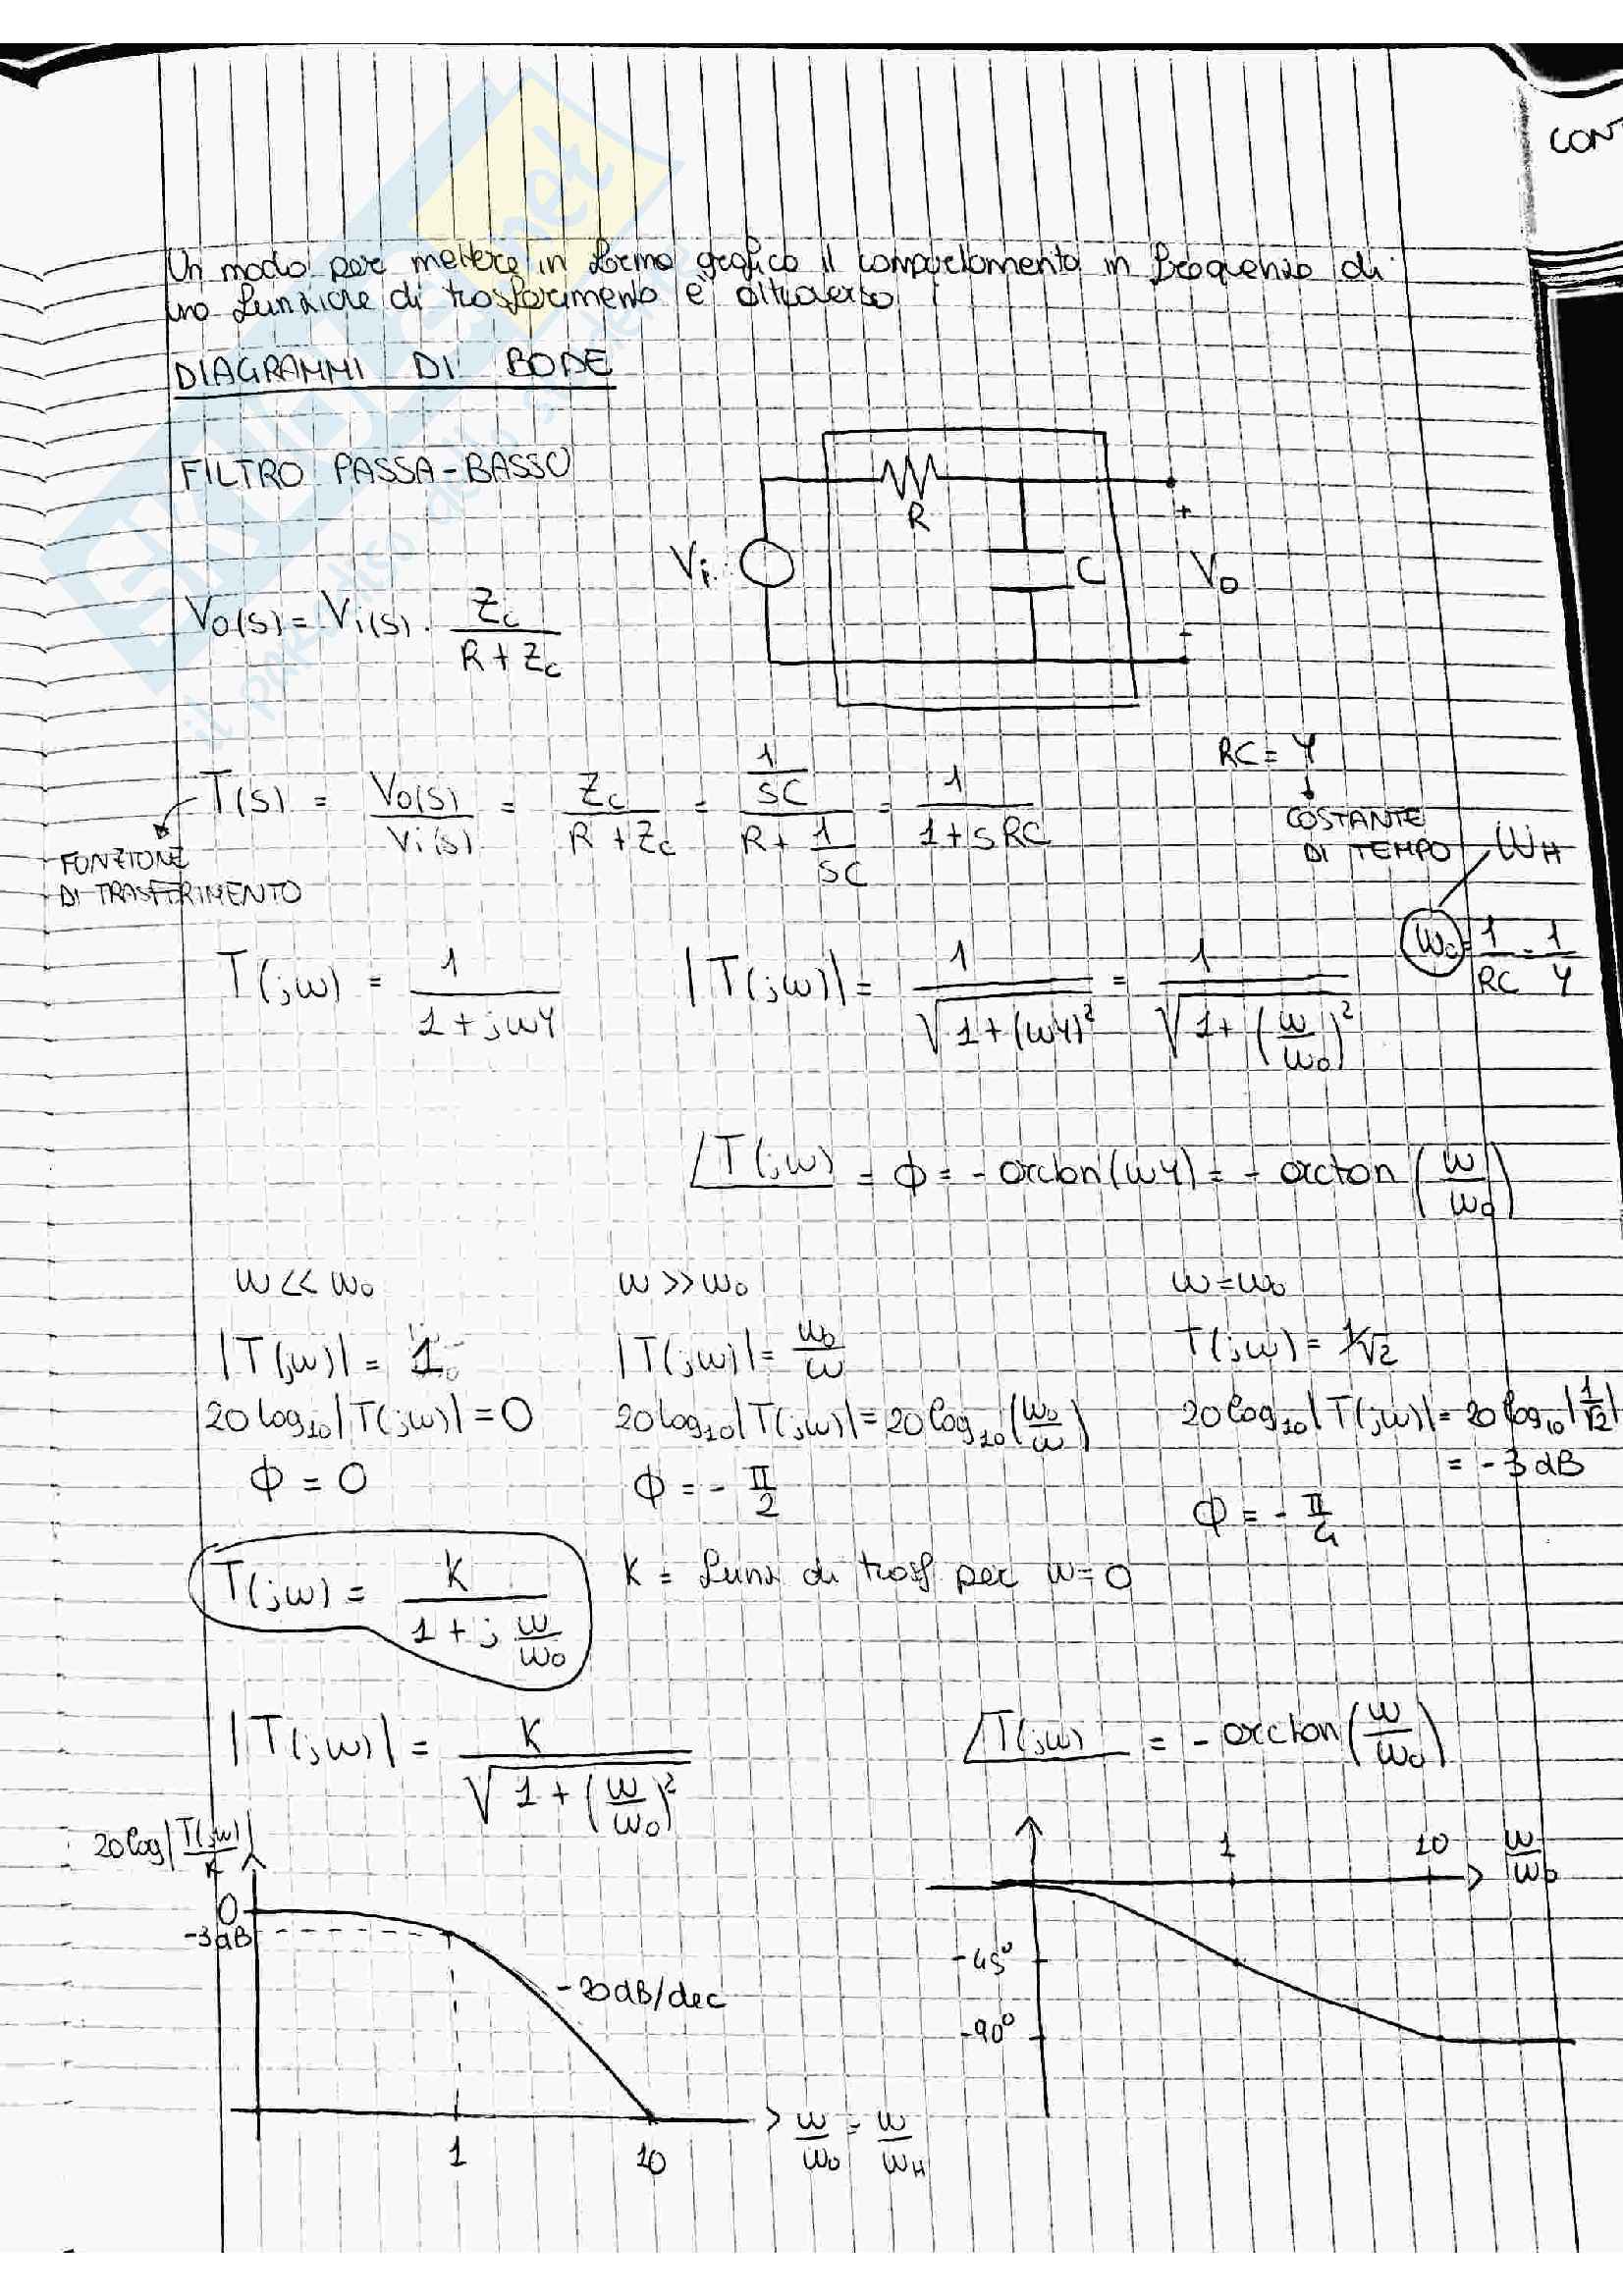 CONT
Un modo per mettere in forma grafica il comportamento in frequenza di
una funzione di trasferimento è attraverso:
DIAGRAMMI DI BODE
FILTRO PASSA-BASSO
R
C
Vi
+
Vo
-
Vo(s) = Vi(s) · Zc / (R + Zc)
RC = τ
COSTANTE
DI TEMPO
T(s) = Vo(s)/Vi(s) = Zc/(R + Zc) = (1/sC)/(R + 1/sC) = 1/(1 + sRC)
FUNZIONE
DI TRASFERIMENTO
ωH
ω0 = 1/RC = 1/τ
T(jω) = 1/(1 + jωτ) |T(jω)| = 1/√(1 + (ωτ)²) = 1/√(1 + (ω/ω0)²)
∠T(jω) = ϕ = - arctan(ωτ) = - arctan(ω/ω0)
ω << ω0 ω >> ω0 ω = ω0
|T(jω)| = 1 |T(jω)| = ω0/ω T(jω) = 1/√2
20 log10|T(jω)| = 0 20 log10|T(jω)| = 20 log10(ω0/ω) 20 log10|T(jω)| = 20 log10|1/√2|
= -3 dB
ϕ = 0 ϕ = - π/2 ϕ = - π/4
T(jω) = K/(1 + j ω/ω0) K = funz di trasf per ω = 0
|T(jω)| = K/√(1 + (ω/ω0)²) ∠T(jω) = - arctan(ω/ω0)
20 log|T(jω)/K|
0
-3dB
-20dB/dec
1 10 ω/ω0 = ω/ωH
1 10 ω/ω0
-45°
-90°